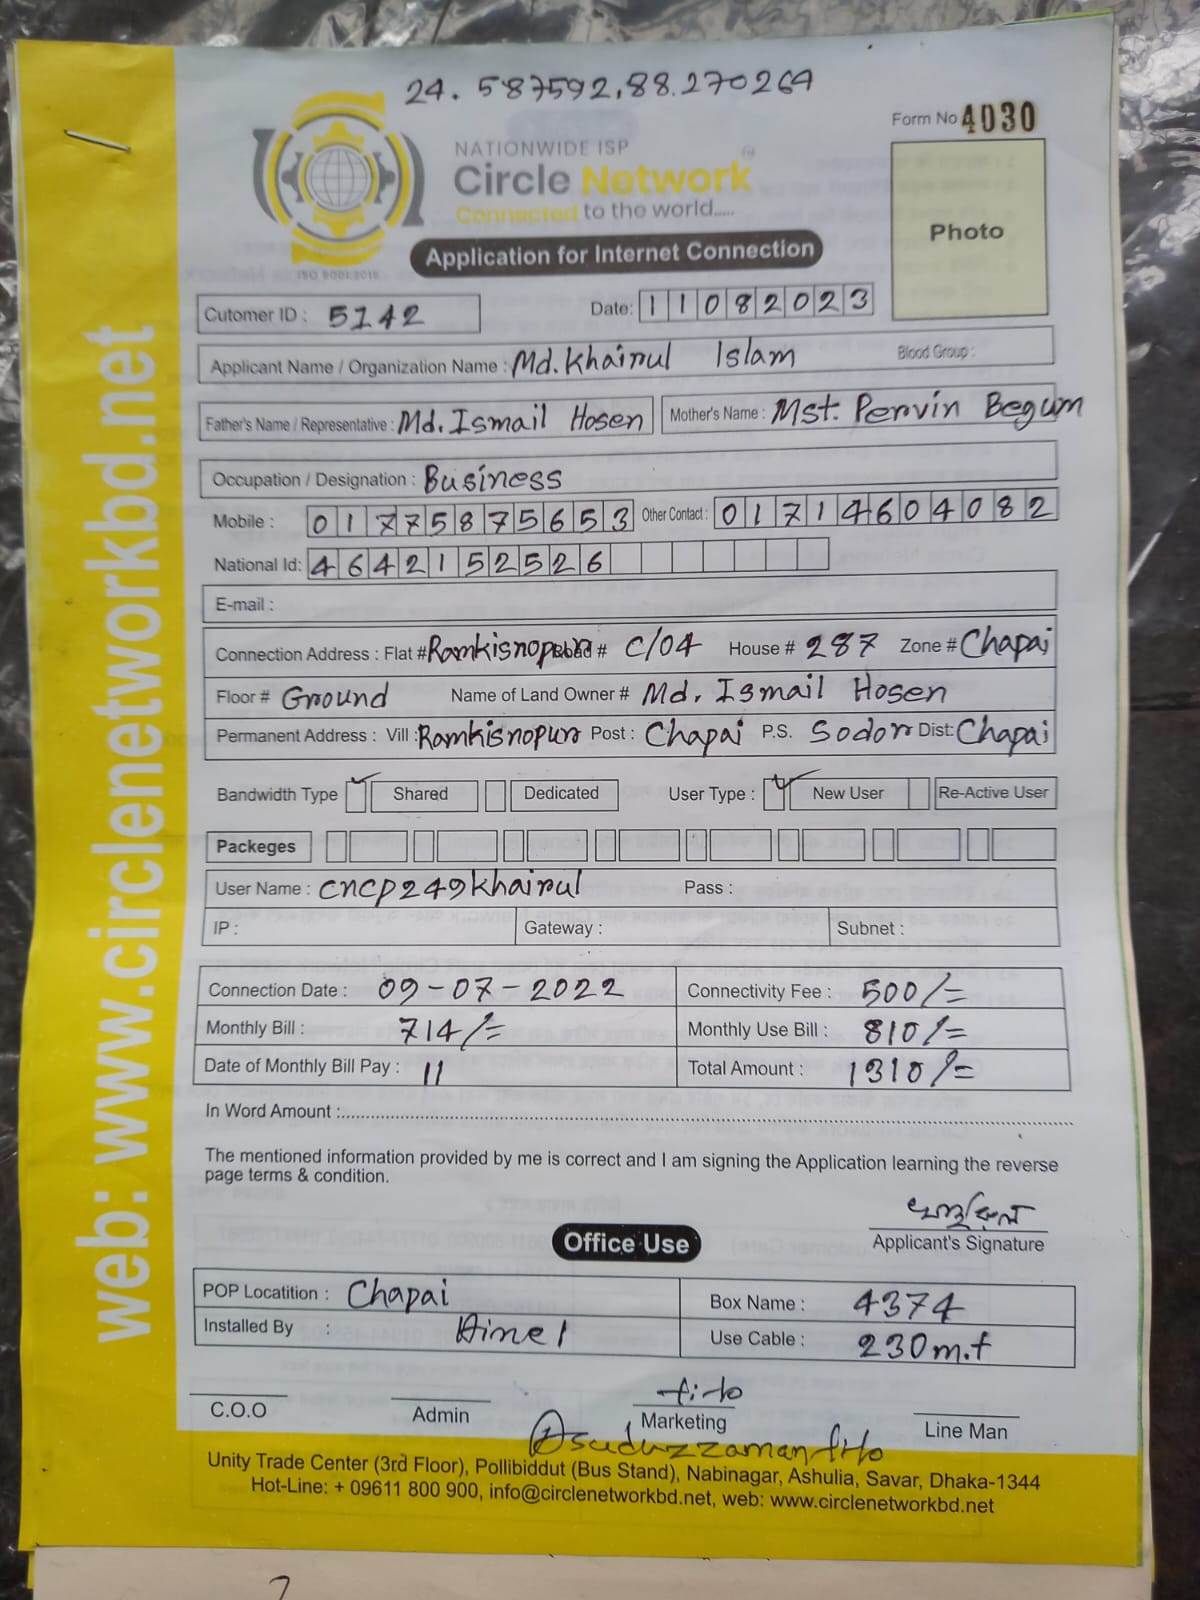 24.587592,88.270264
Form No 4030
NATIONWIDE ISP
Circle Network
Connected to the world.....
ISO 9001:2015
Photo
Application for Internet Connection
Cutomer ID : 5142 Date: 11082023
Applicant Name / Organization Name : Md. Khairul Islam Blood Group :
Father's Name / Representative : Md. Ismail Hosen Mother's Name : Mst. Pervin Begum
Occupation / Designation : Business
Mobile : 01775875653 Other Contact : 01714604082
National Id: 4642152526
E-mail :
Connection Address : Flat # Ramkisnopur Road # C/04 House # 287 Zone # Chapai
Floor # Ground Name of Land Owner # Md. Ismail Hosen
Permanent Address : Vill : Ramkisnopur Post : Chapai P.S. Sodor Dist: Chapai
Bandwidth Type ✓ Shared Dedicated User Type : ✓ New User Re-Active User
Packeges
User Name : cncp249khairul Pass :
IP : Gateway : Subnet :
Connection Date : 09-07-2022 Connectivity Fee : 500/=
Monthly Bill : 714/= Monthly Use Bill : 810/=
Date of Monthly Bill Pay : 11 Total Amount : 1310/=
In Word Amount :
The mentioned information provided by me is correct and I am signing the Application learning the reverse
page terms & condition.
খাইরুল
Applicant's Signature
Office Use
POP Locatition : Chapai Box Name : 4374
Installed By : Himel Use Cable : 230m.t
tito
C.O.O Admin Marketing Line Man
Asaduzzaman tito
Unity Trade Center (3rd Floor), Pollibiddut (Bus Stand), Nabinagar, Ashulia, Savar, Dhaka-1344
Hot-Line: + 09611 800 900, info@circlenetworkbd.net, web: www.circlenetworkbd.net
web: www.circlenetworkbd.net